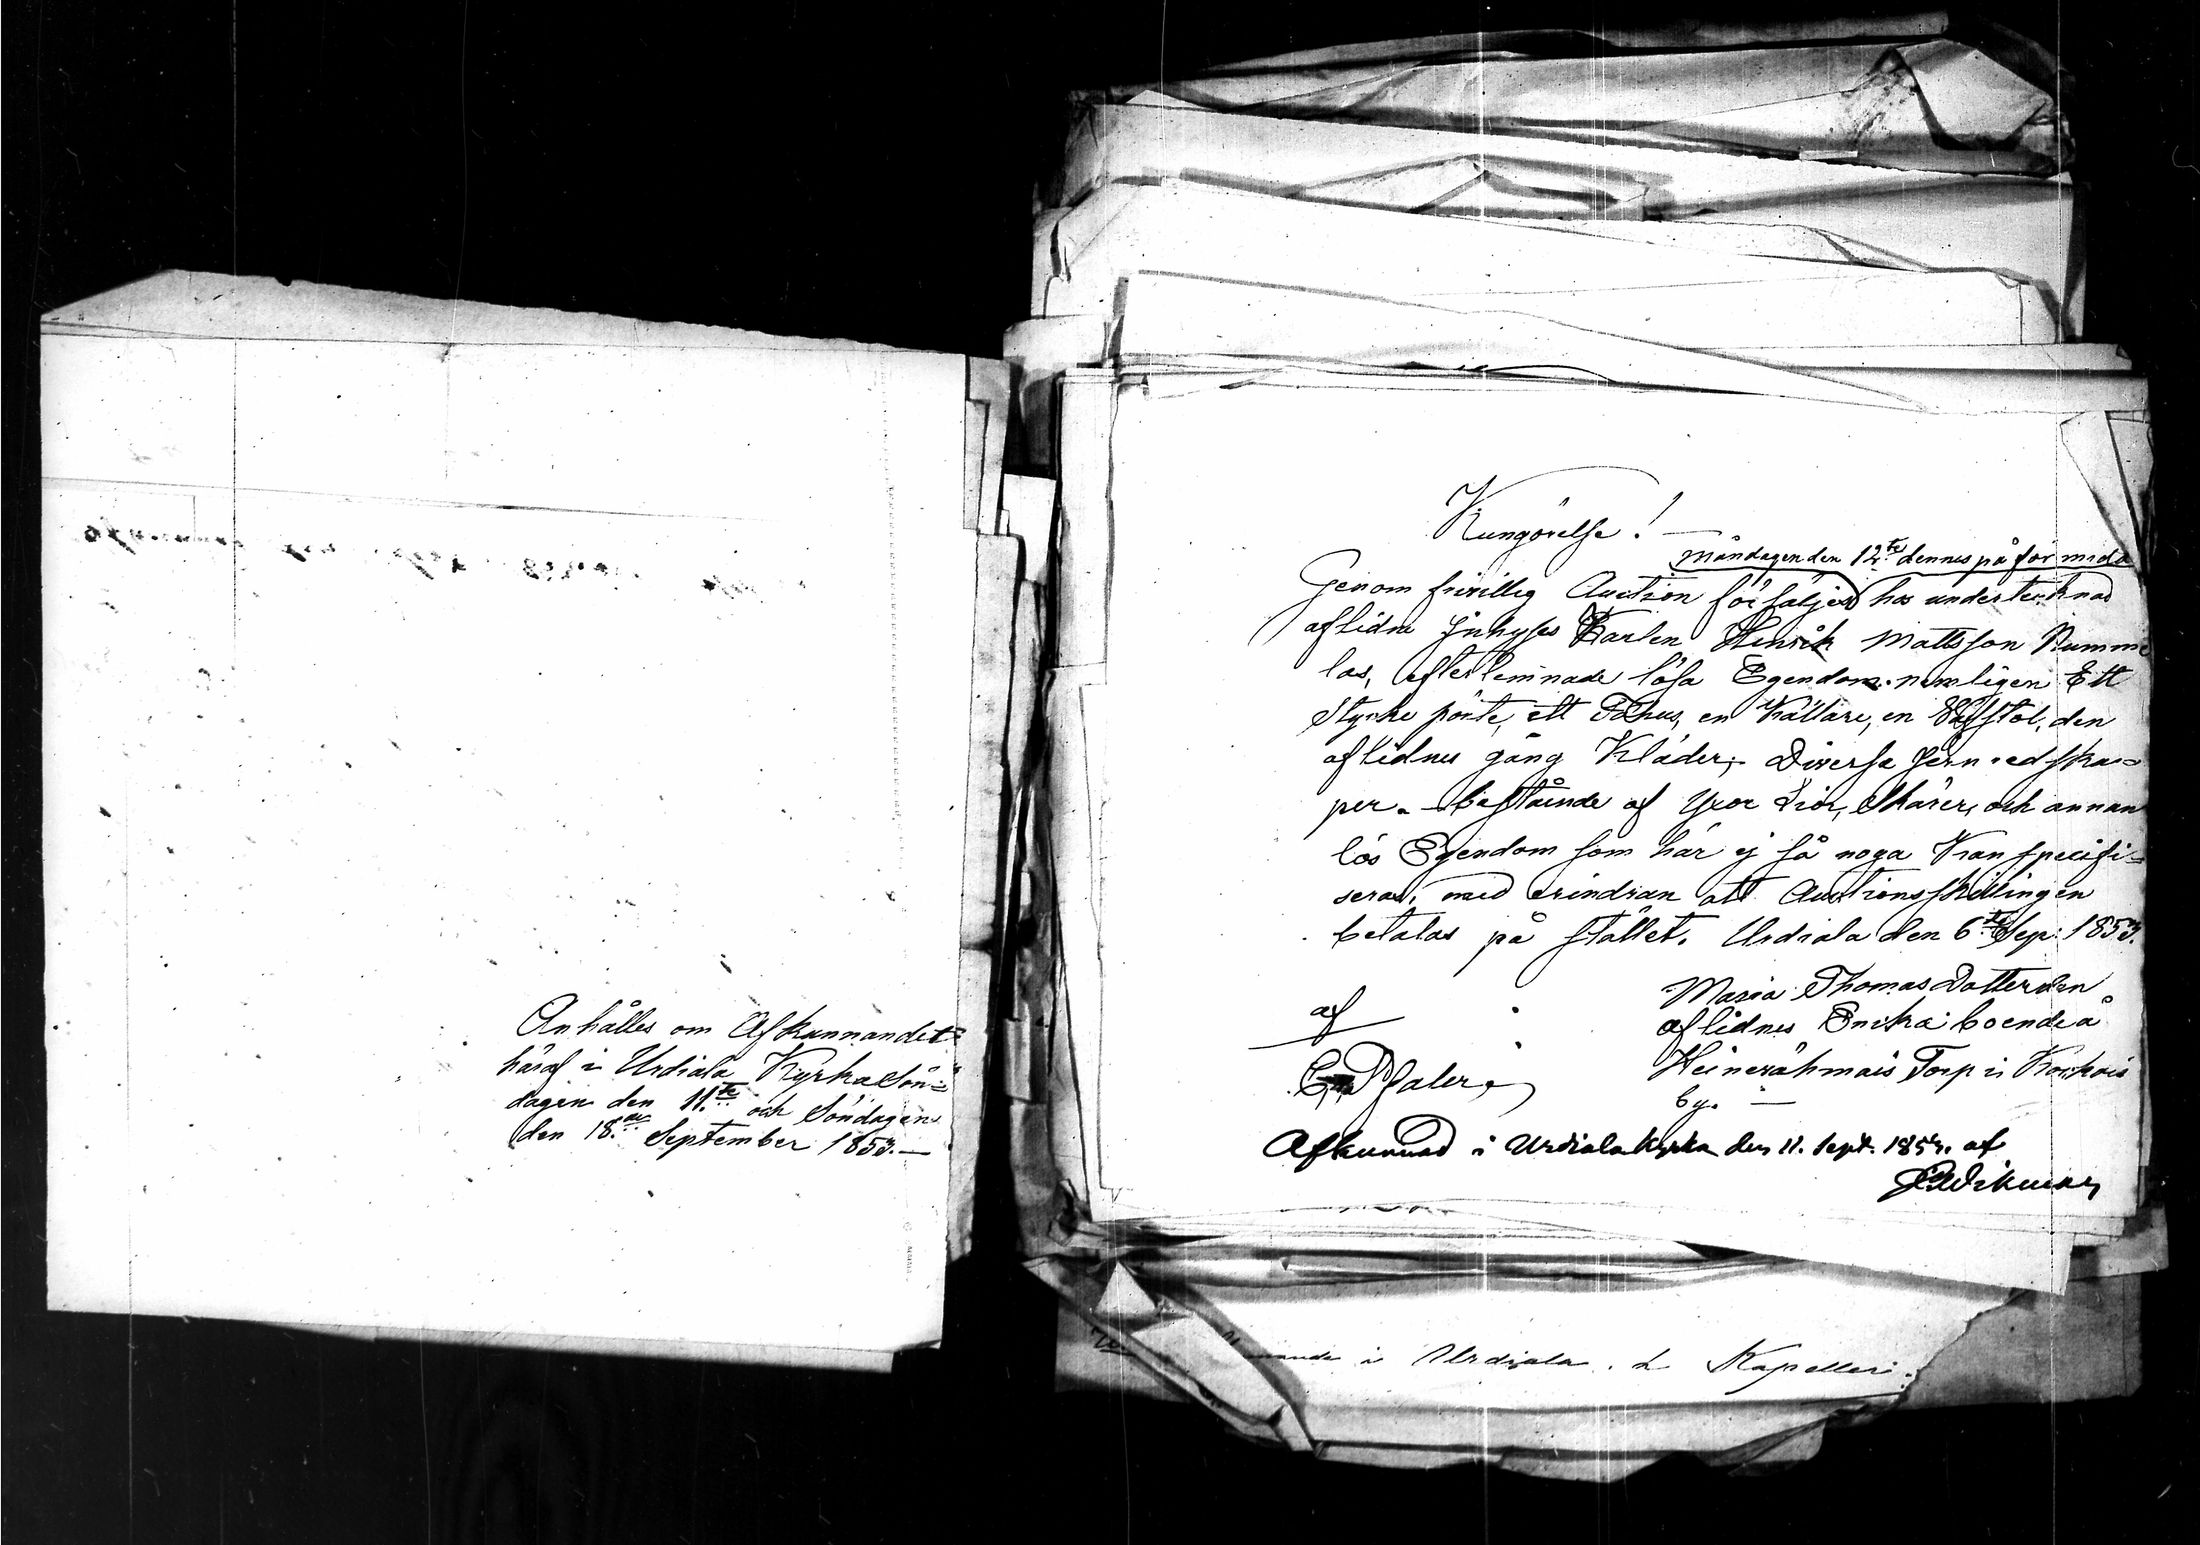 Anhålles om Afkunnandet
häraf i Urdiala Kyrka Sön=
dagen den 11.te och Söndagen
den 18.de September 1853.—
Kungörelse! —
Måndagen den 12te dennes på formida
Genom friwillig Auction försäljes hos undertecknad
aflidne Inhyses Karlen Henrik Mattsson Rumme
las, efterlemnade lösa Egendom nemligen Ett
Stycke pörte, ett Fähus, en Källare, en Väfstol, den
aflidnes gång Kläder, Diverse Jern redska=
per. bestående af Yxor Liar, Skäror, och annan
lös Egendom som här ej så noga Kan specifi=
seras, med erindran att Auctionsskillingen
betalas på stället. Urdiala den 6te Sep: 1853.
af
Maria Thomas Dotter den
aflidnes Enka boende å
Heinerähmäis Torp i
by. —
Afkunnad i Urdiala Kyrka den 11. Sept. 1853. af
i Urdiala Kapelleri